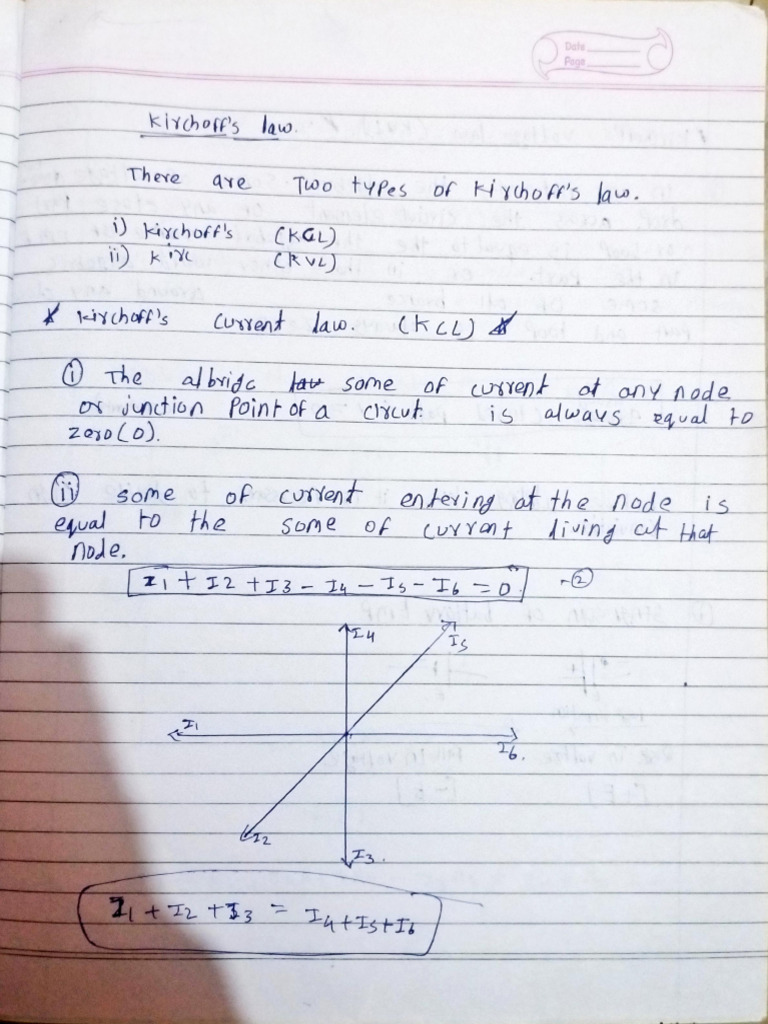 Date
Page
Kirchoff's law.
There are Two types of Kirchoff's law.
i) Kirchoff's (KCL)
ii) Kirc (KVL)
Kirchoff's Current law. (KCL)
i The albridc law some of current at any node
or junction Point of a circut is always equal to
zero (0).
ii some of current entering at the node is
equal to the some of current living at that
node.
I1 + I2 + I3 - I4 - I5 - I6 = 0. - 2
I4
I5
I1
I6.
I2
I3.
I1 + I2 + I3 = I4 + I5 + I6